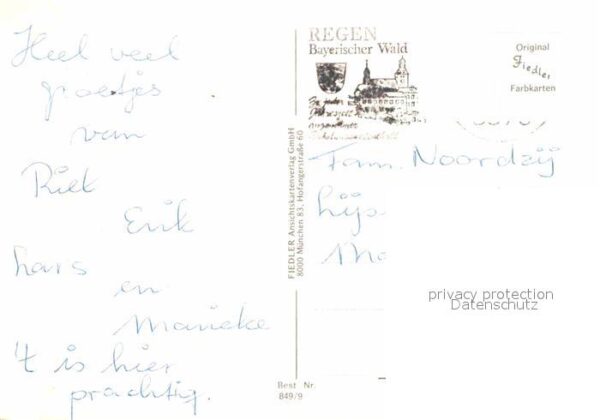 Heel veel
groetjes
van
Riet
Erik
hans
en
Marieke
't is hier
prachtig.
FIEDLER Ansichtskartenverlag GmbH
8000 München 83, Hofangerstraße 60
Best Nr.
849/9
REGEN
Bayerischer Wald
In jeder
Original
Fiedler
Farbkarten
Fam. Noordzij
privacy protection
Datenschutz